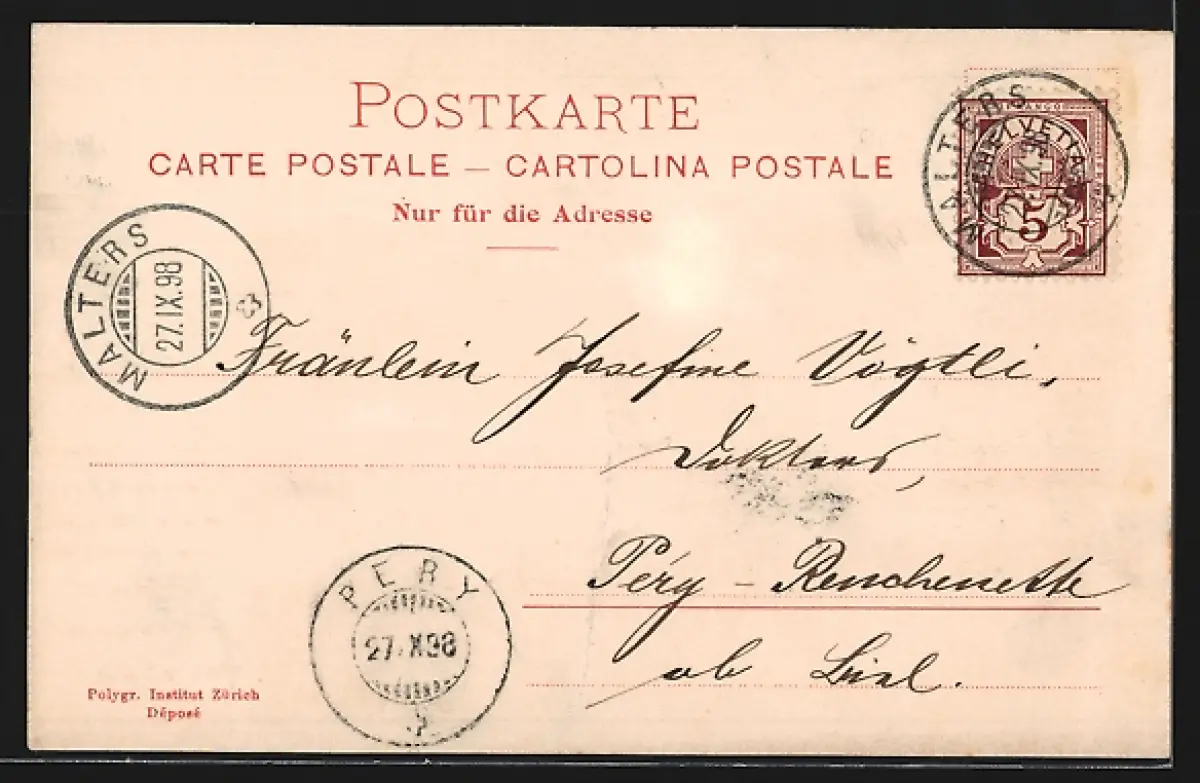 POSTKARTE
CARTE POSTALE — CARTOLINA POSTALE
Nur für die Adresse
MALTERS
HELVETIA
5
MALTERS
27.IX.98
Fräulein Josefine Vögtli,
Doktors,
Péry - Reuchenette
ob Biel.
PERY
27.IX.98
Polygr. Institut Zürich
Déposé